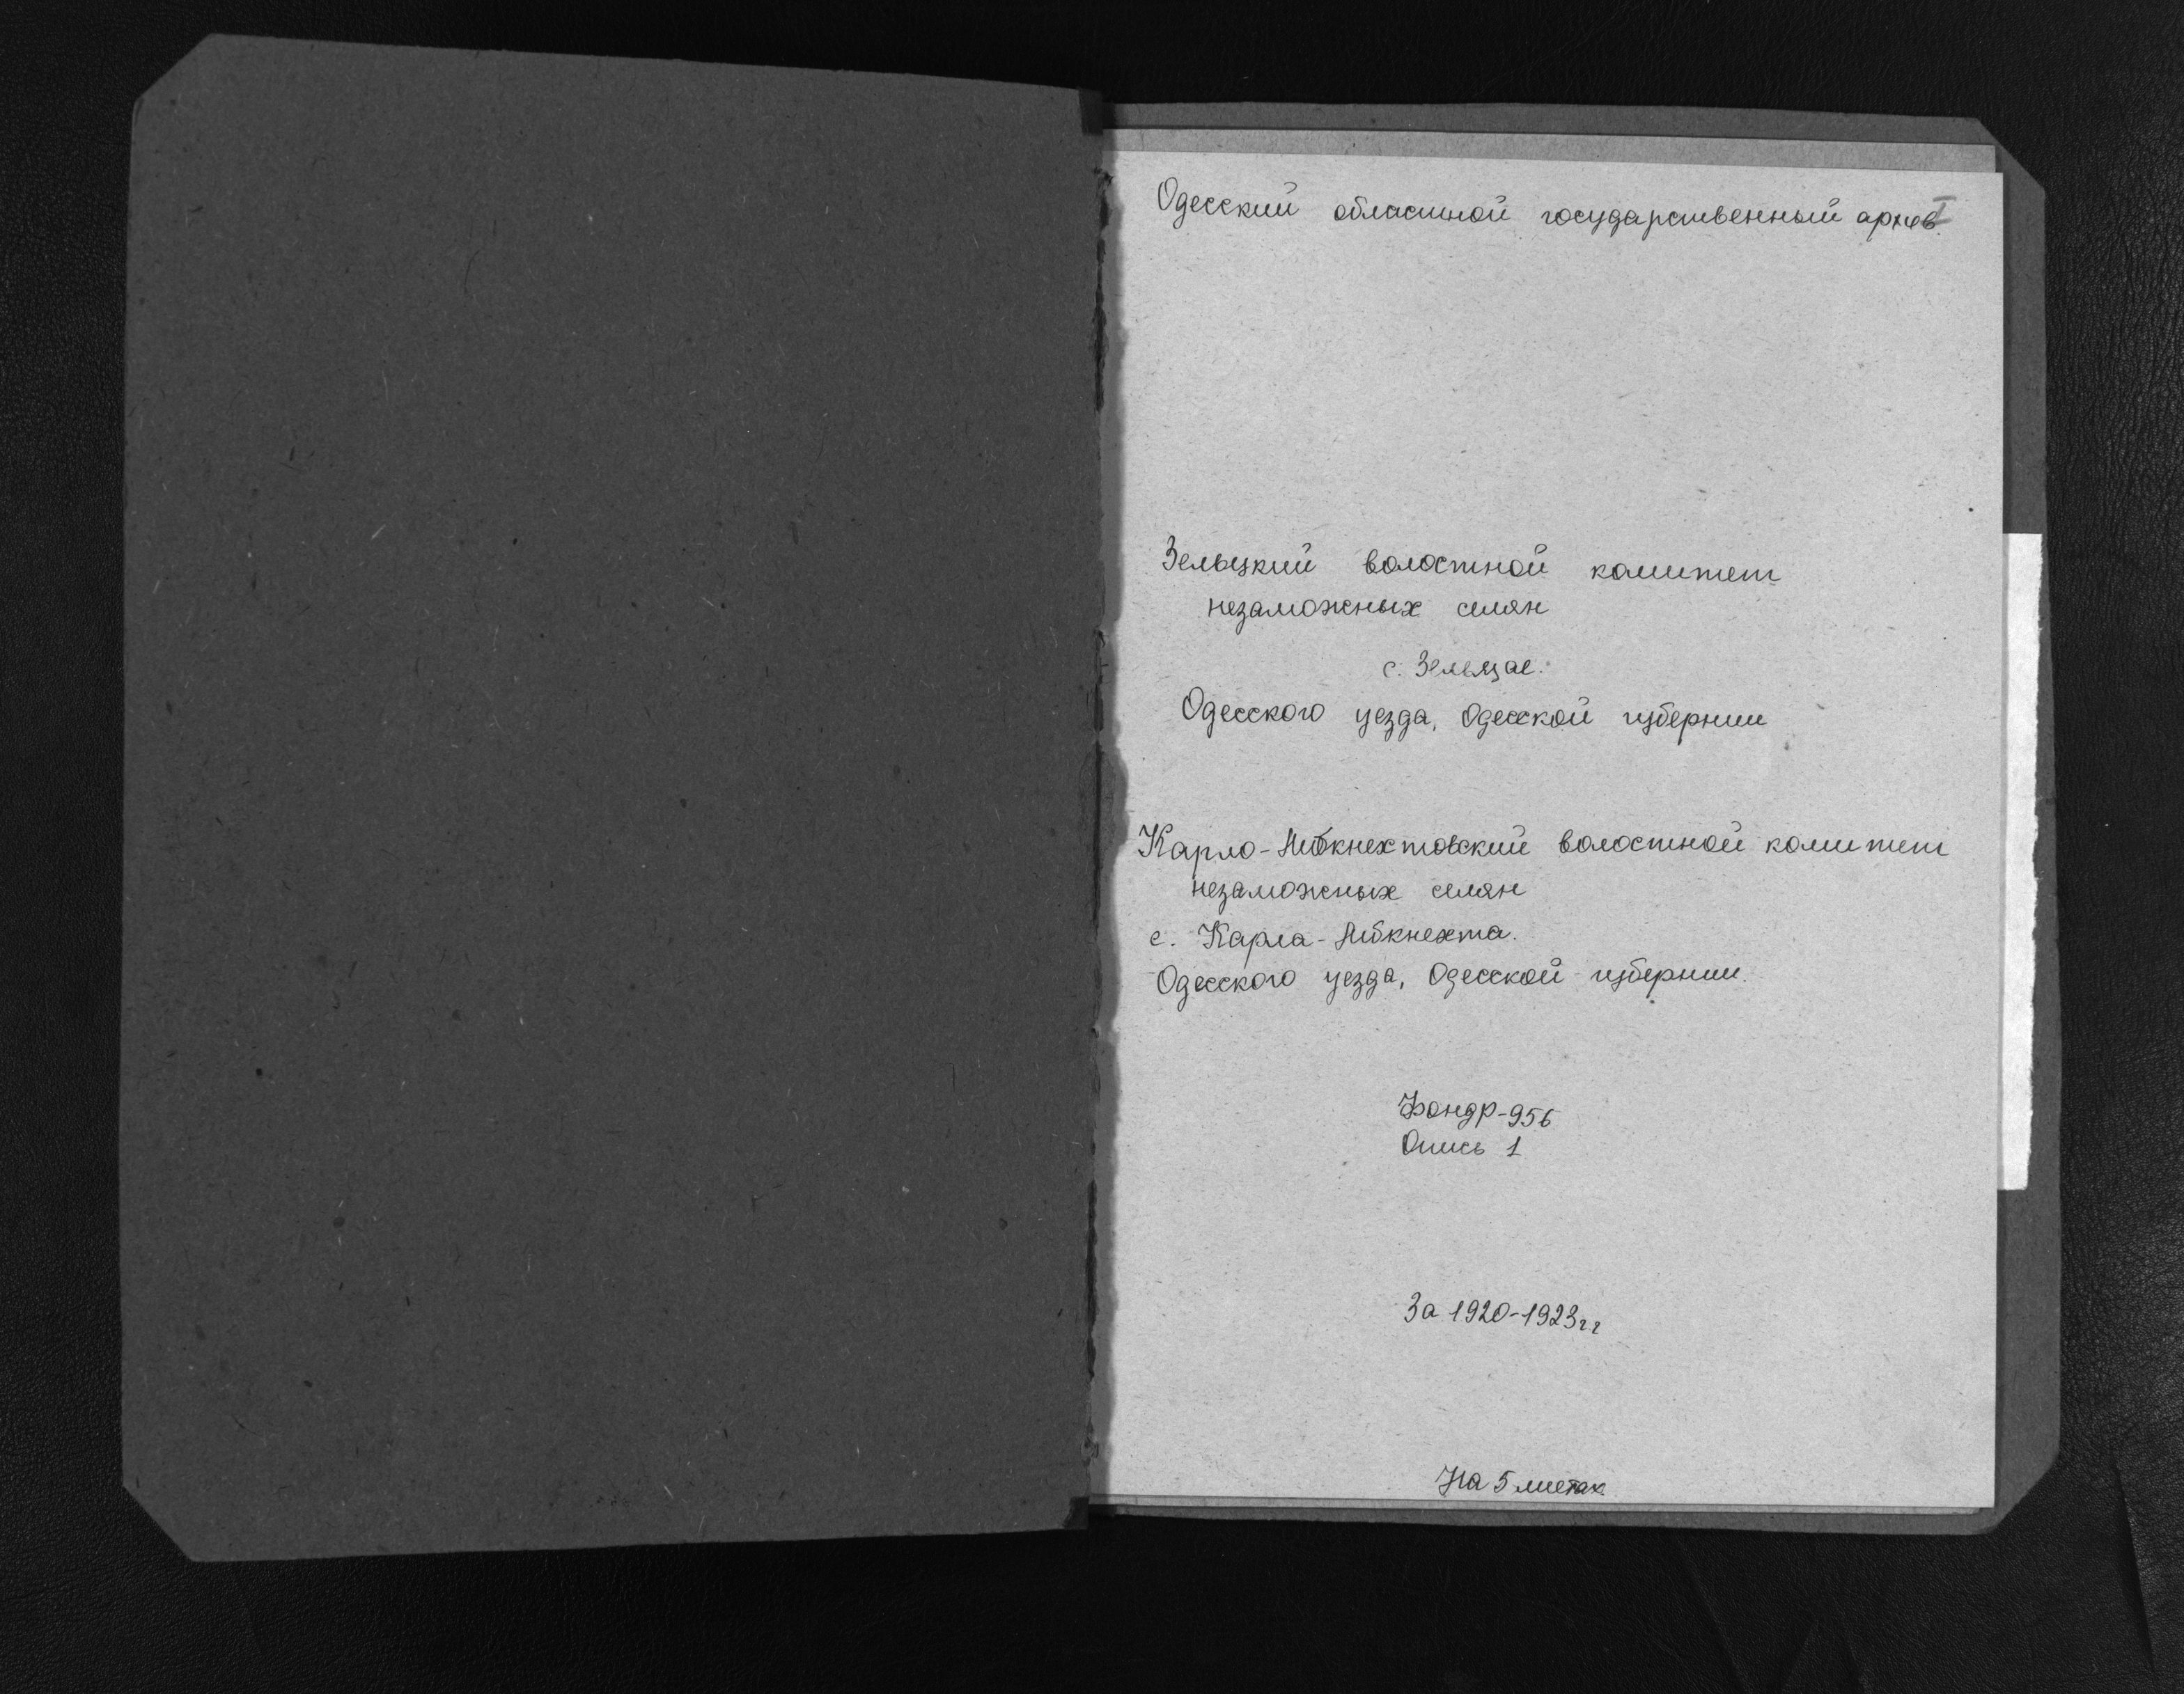 Одесский областной государственный архив I
Зельцкий волостной комитет
незаможных селян
с. Зельцае.
Одесского уезда, Одесской губернии
Карло-Либкнехтовский волостной комитет
незаможных селян
с. Карла-Либкнехта.
Одесского уезда, Одесской губернии.
Фонд Р-956
Опись 1
За 1920-1923 гг
На 5 листах